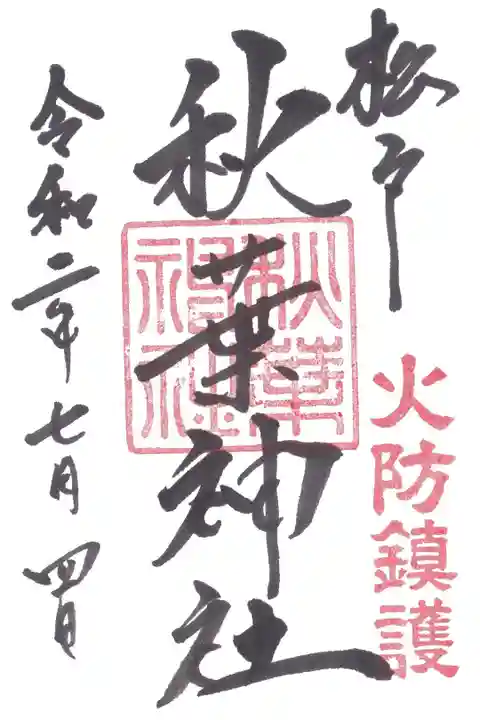 松戸
火防鎮護
秋葉神社
秋葉神社
令和二年七月四日